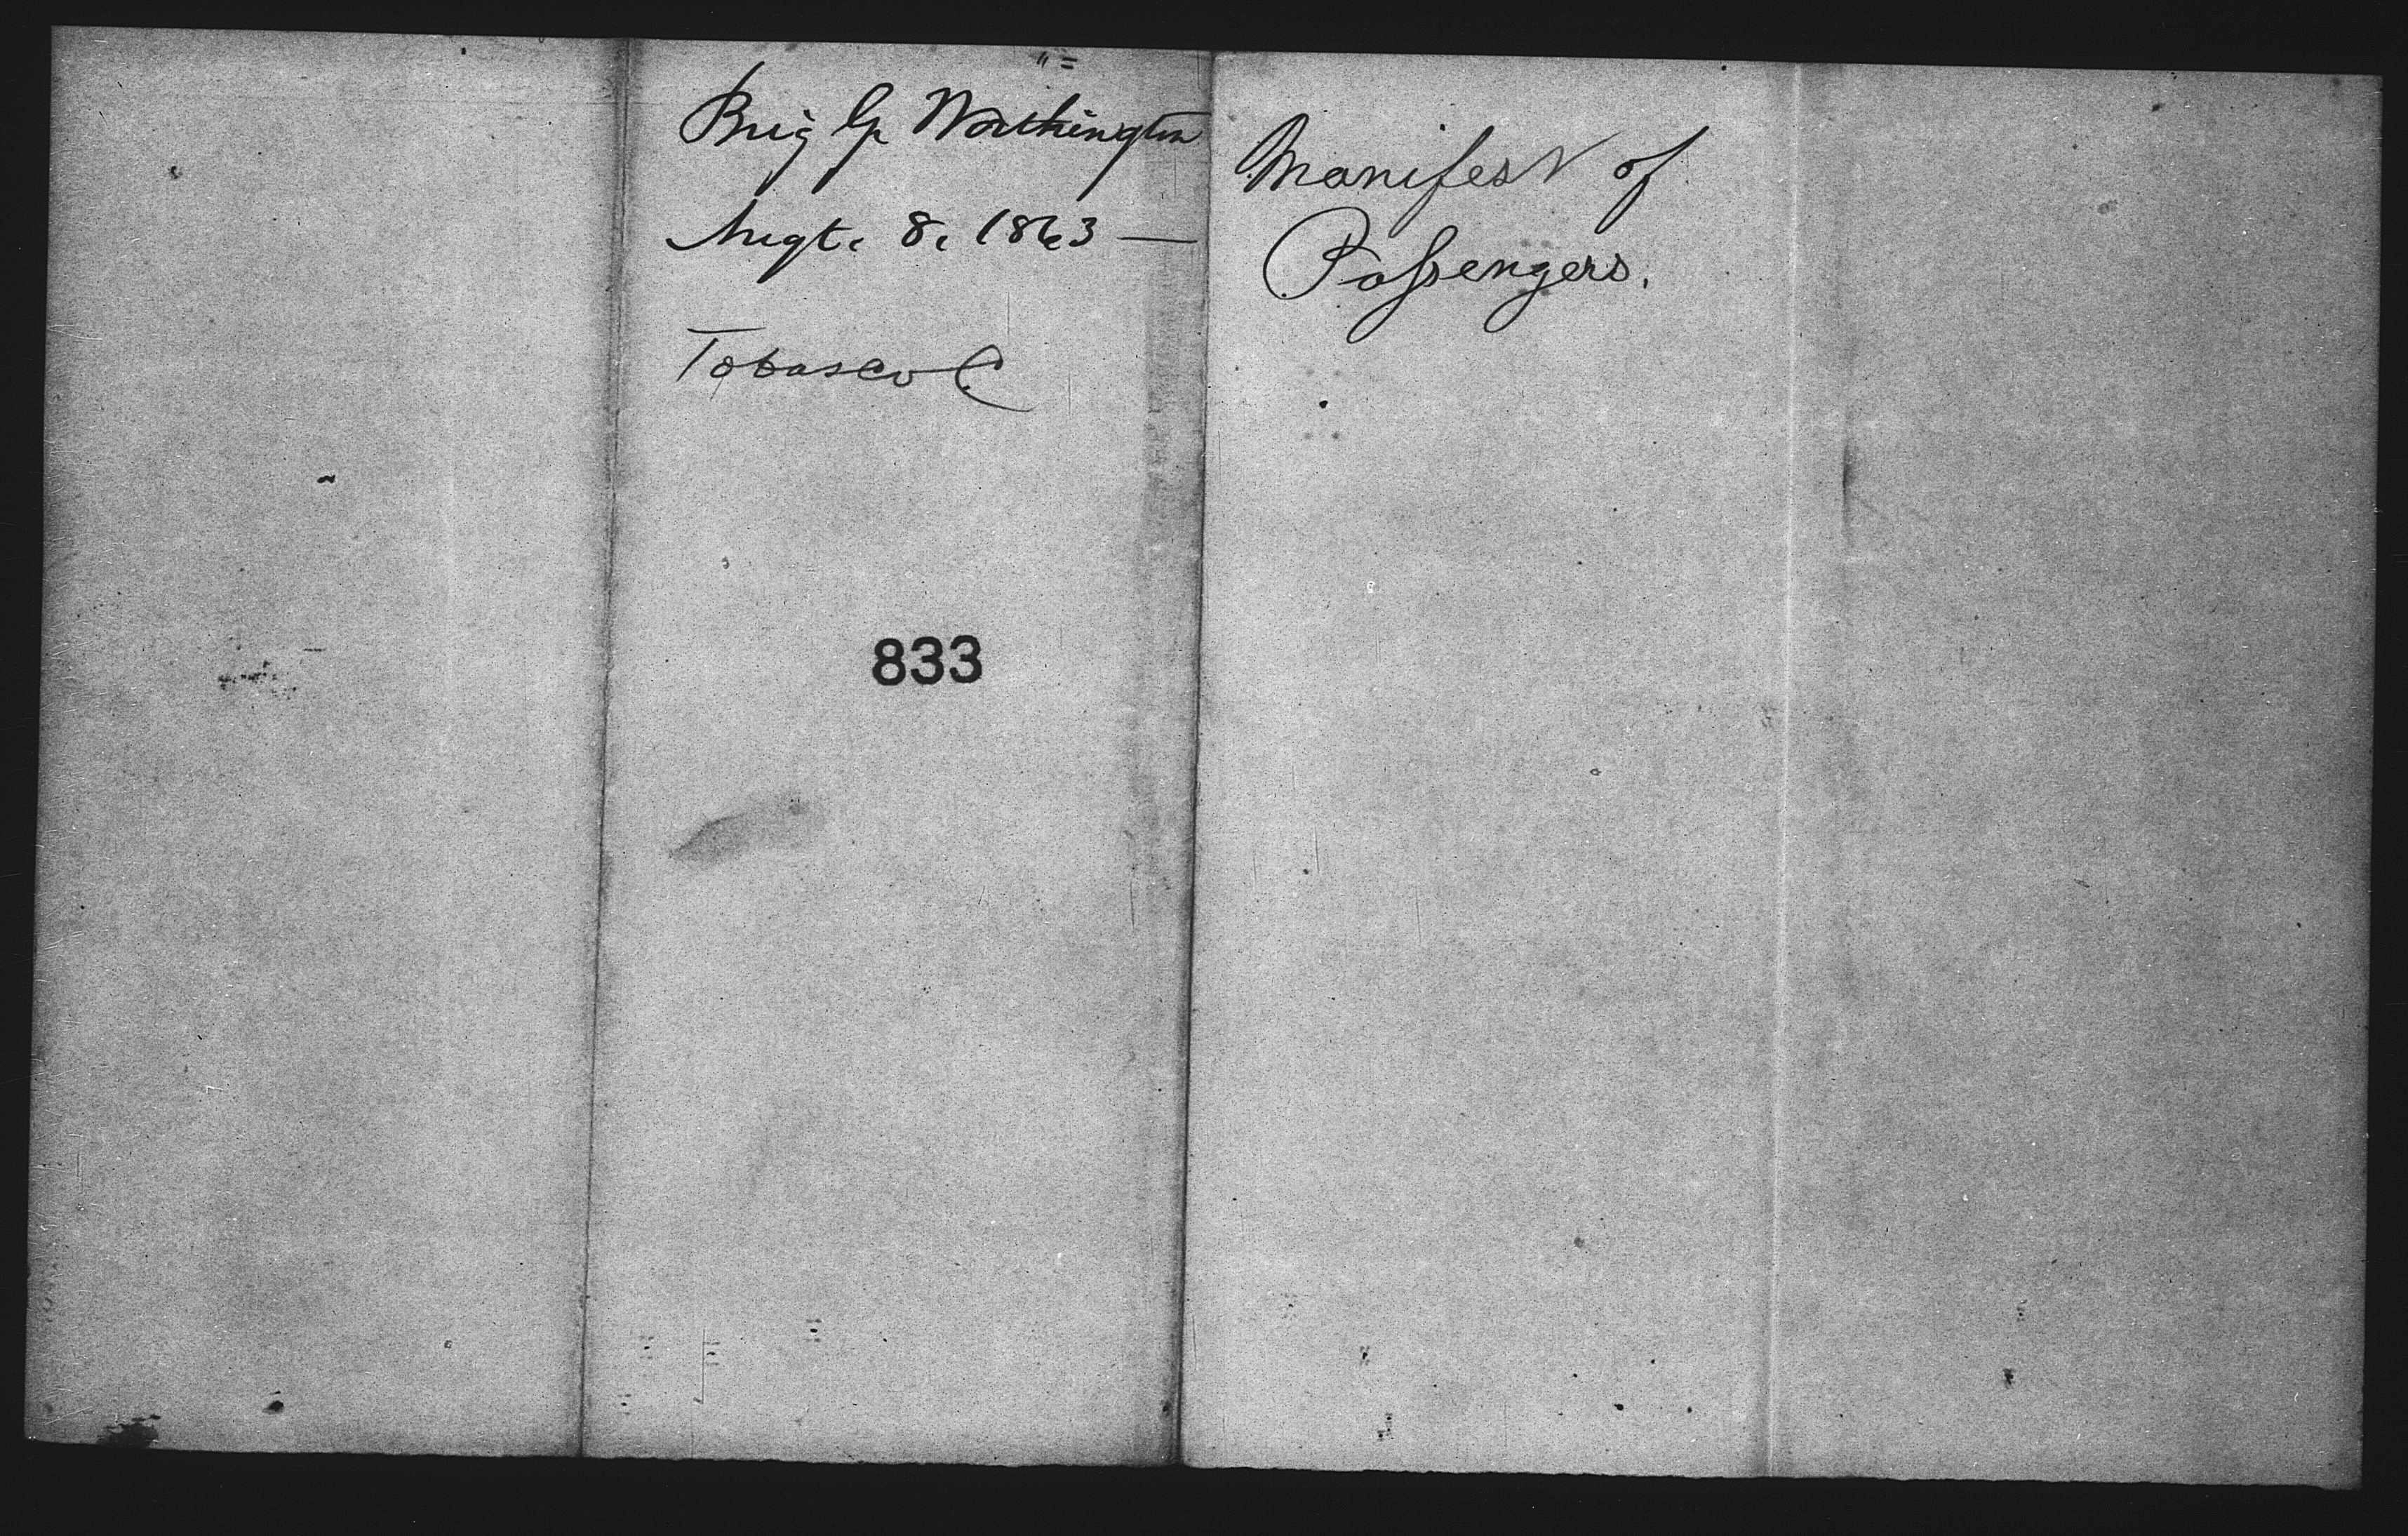 Brig Gp Worthington
Augt. 8, 1863 —
Tobasco
833
Manifest of
Passengers.